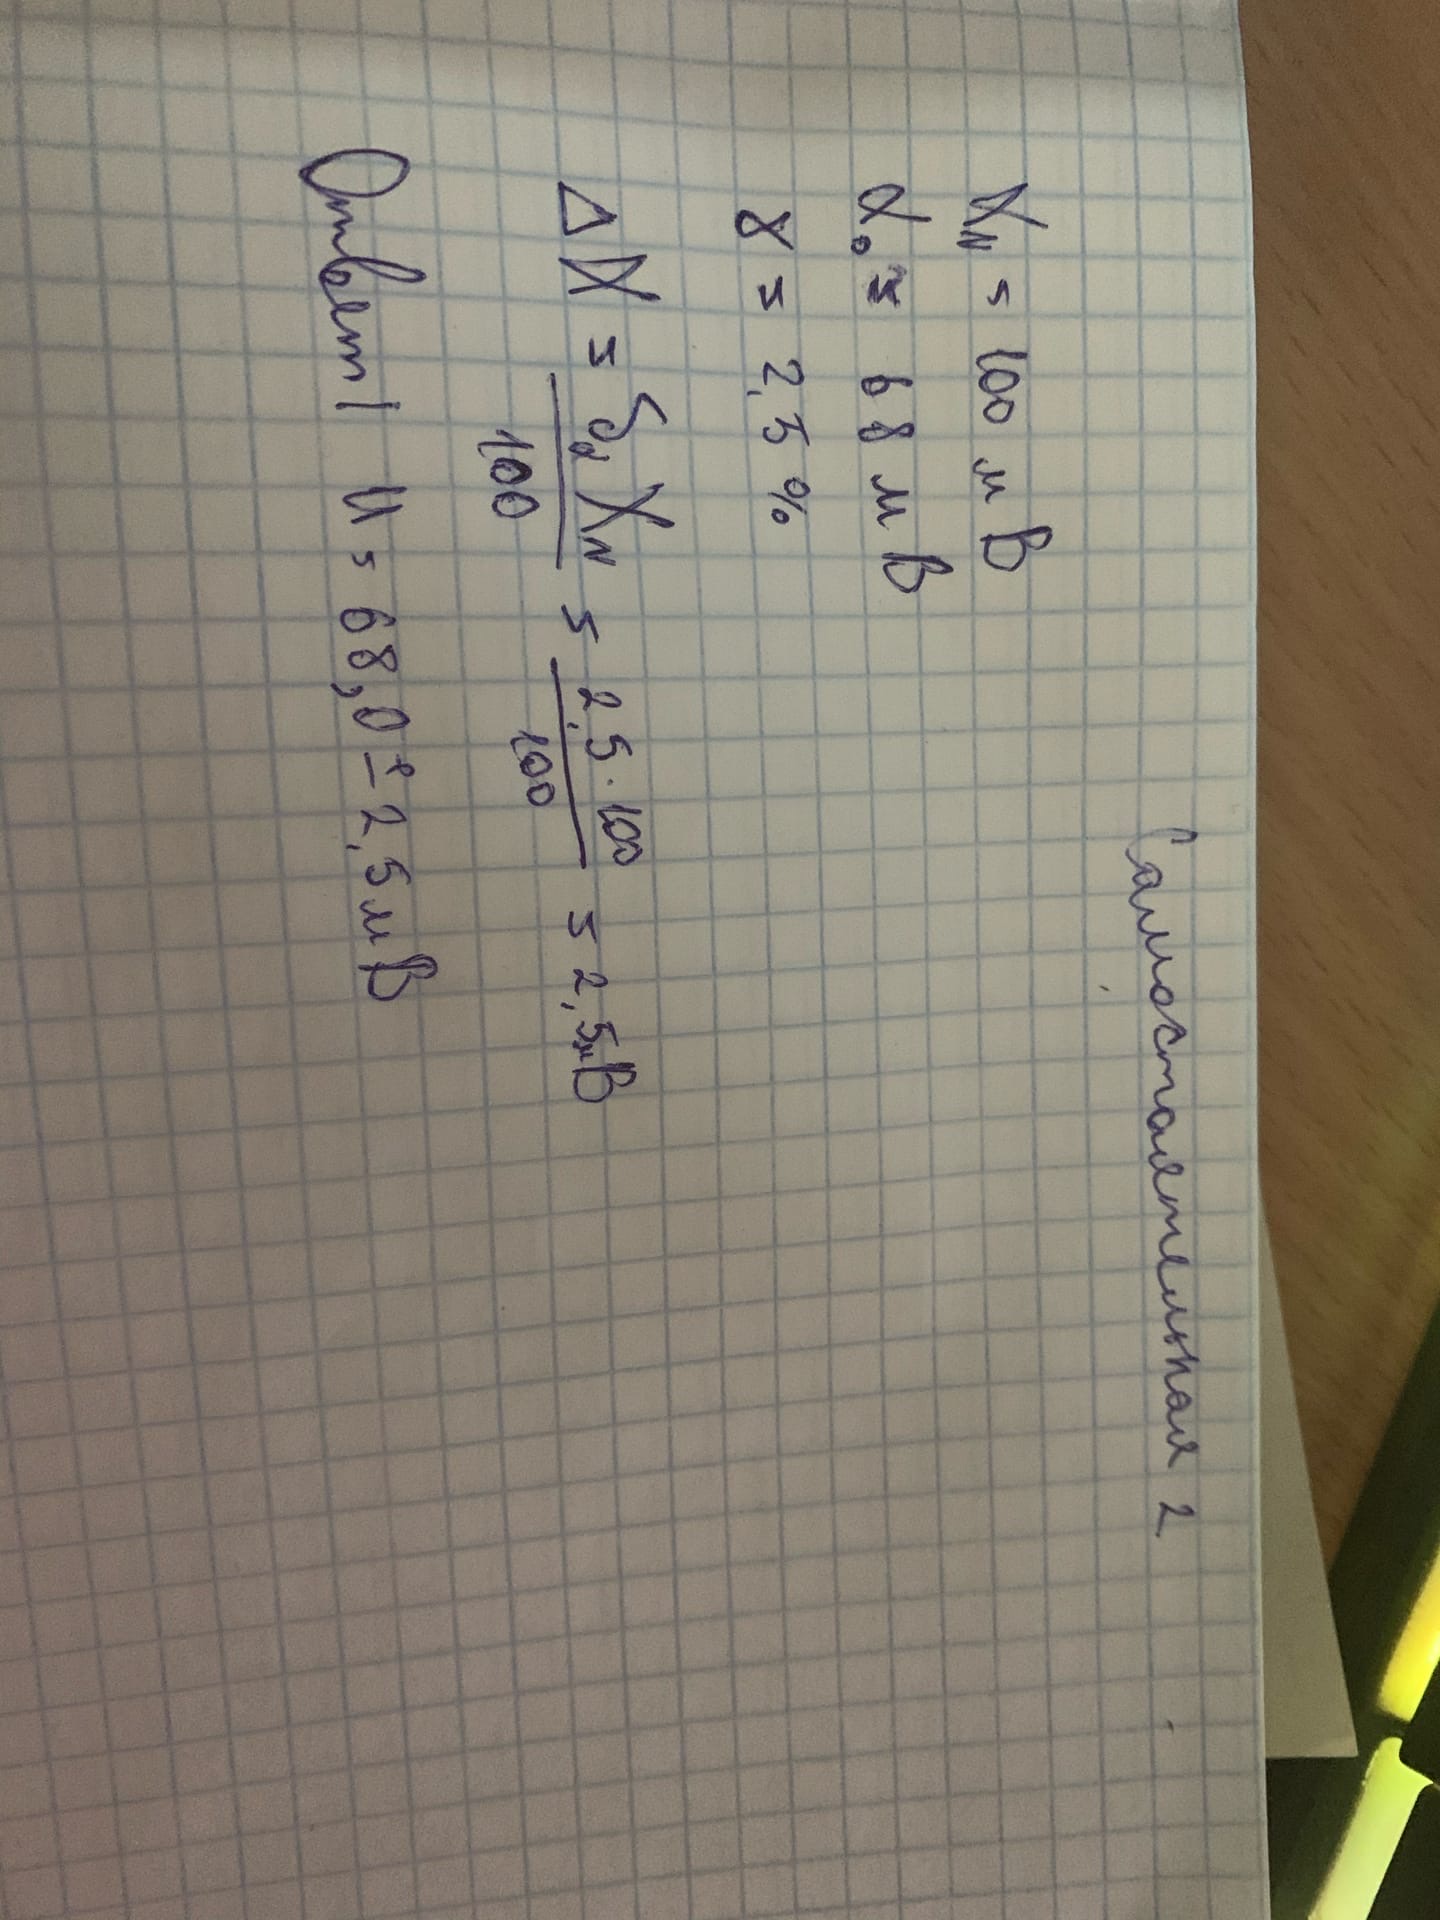 Самостоятельная 2
X_N = 100 мВ
X_0 = 68 мВ
γ = 2,5 %
ΔX = δ_д X_N / 100 = 2,5 · 100 / 100 = 2,5 мВ
Ответ | U = 68,0 ± 2,5 мВ